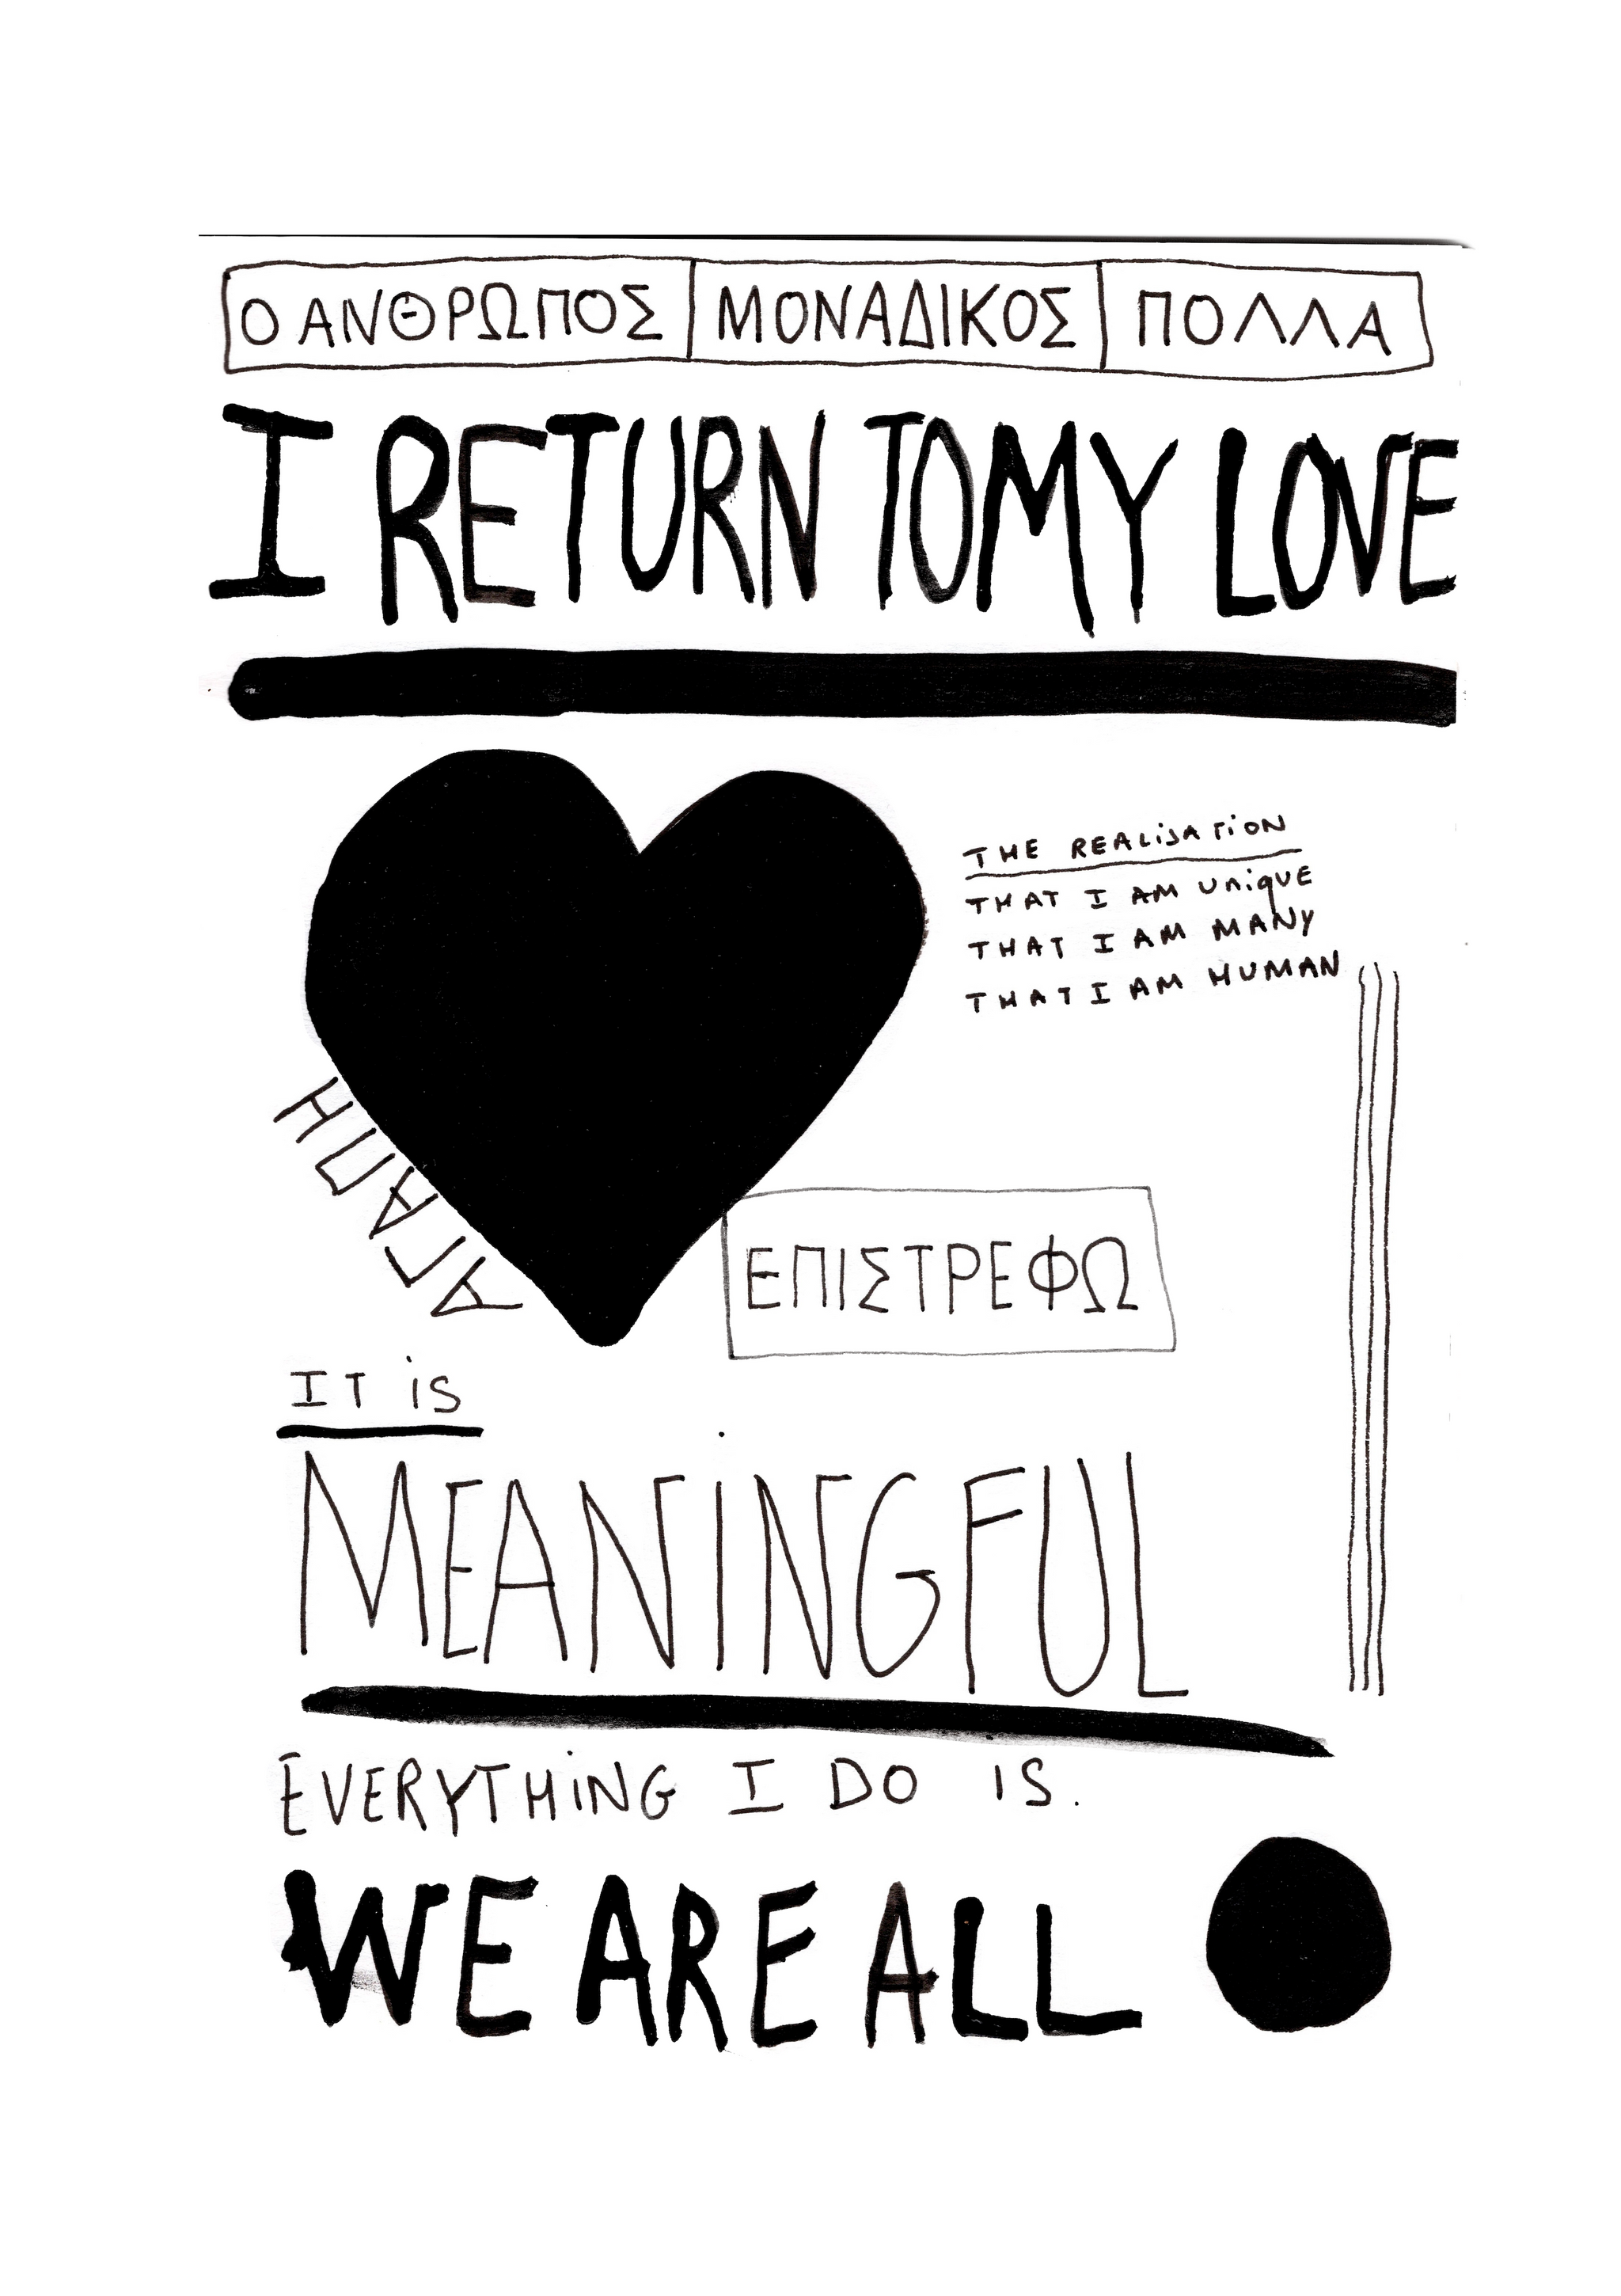 Ο ΑΝΘΡΩΠΟΣ ΜΟΝΑΔΙΚΟΣ ΠΟΛΛΑ
I RETURN TO MY LOVE
THE REALISATION
THAT I AM UNiqUE
THAT I AM MANY
THAT I AM HUMAN
ΑΓΑΠΗ
ΕΠΙΣΤΡΕΦΩ
IT iS
MEANiNGFUL
EVERYTHiNG I DO iS.
WE ARE ALL